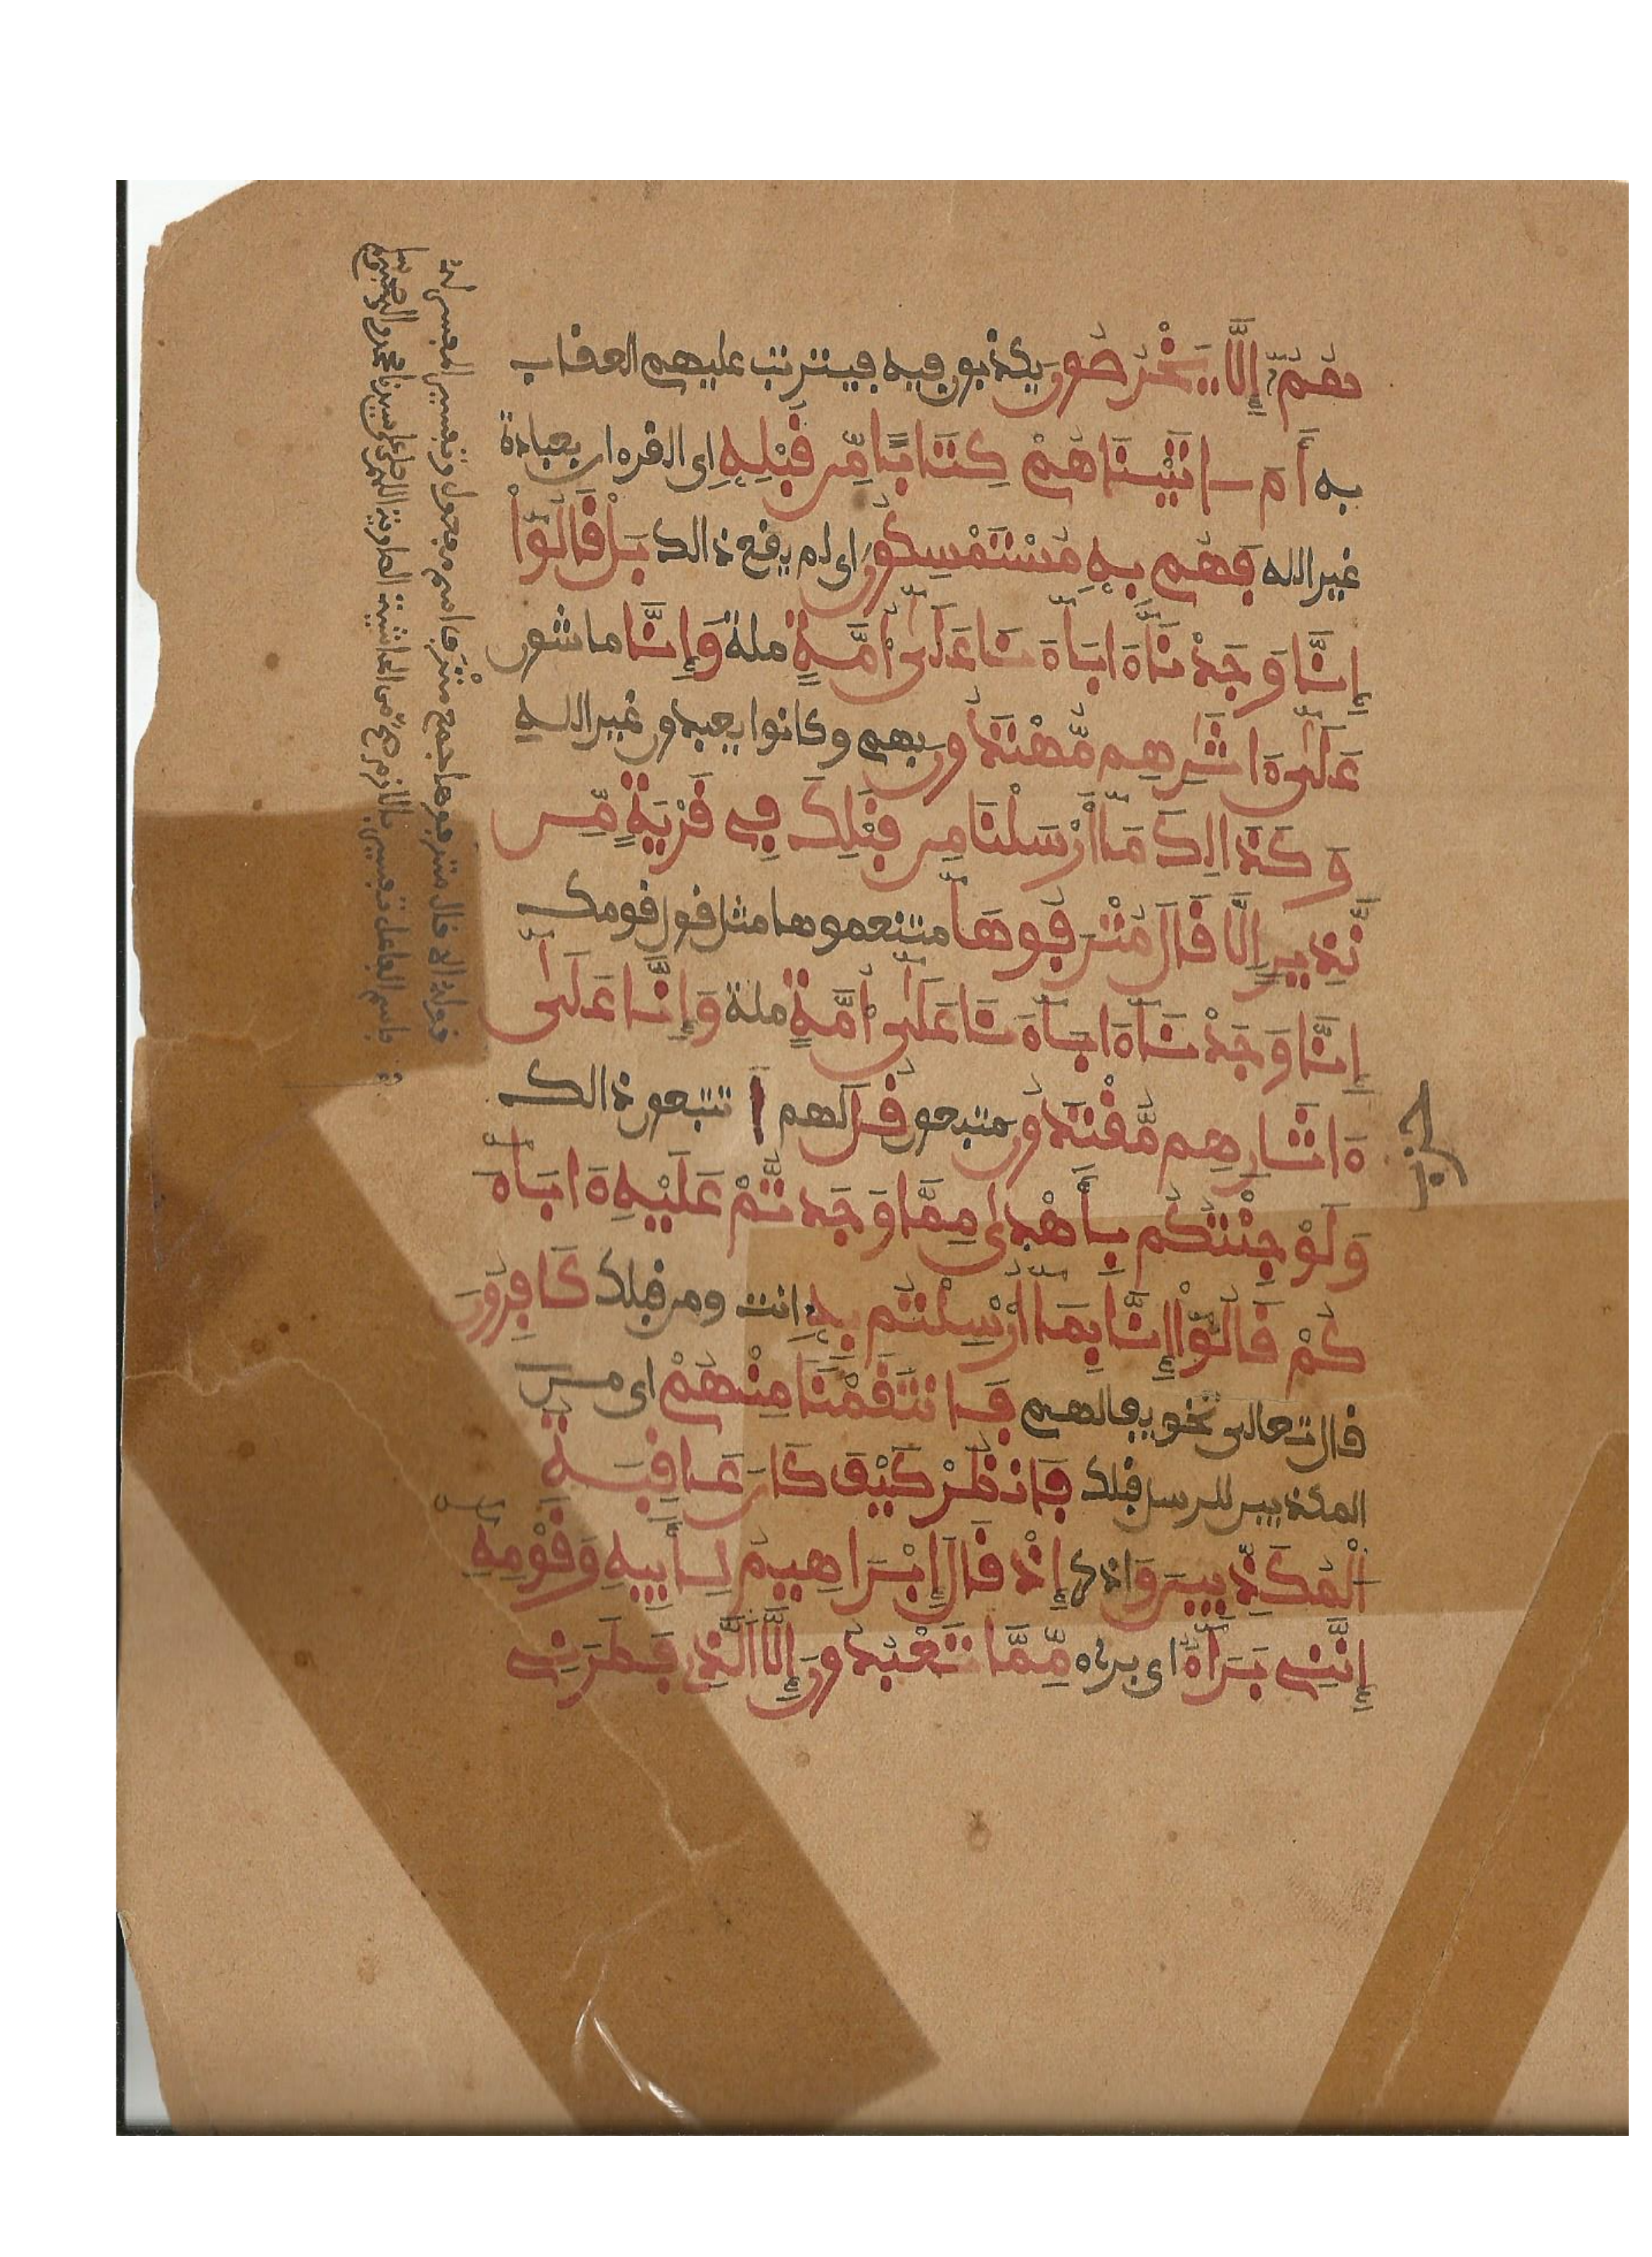 هُمُۥٓ إِلَّا يَخْرُصُونَ يكذبون فيه فيترتب عليهم العقاب
به أَمَ اتَيْنَاهُمْ كِتَابًا مِّن قَبْلِهِ اى القرءان بعبادة
غير الله فَهُم بِهِ مُسْتَمْسِكُونَ اى لم يقع ذالك بَلْ قَالُوٓاْ
إِنَّا وَجَدْنَآ ءَابَآءَنَا عَلَىٰٓ أُمَّةٍ ملة وَإِنَّا ماشون
عَلَىٰٓ ءَاثَٰرِهِم مُّهْتَدُونَ بهم وكانوا يعبدون غير الله
وَكَذَالِكَ مَآ أَرْسَلْنَا مِن قَبْلِكَ فِے قَرْيَةٍ مِّن
نَّذِيرٍ إِلَّا قَالَ مُتْرَفُوهَآ متنعموها مثل قول قومك
إِنَّا وَجَدْنَآ ءَابَآءَنَا عَلَىٰٓ أُمَّةٍ ملة وَإِنَّا عَلَىٰٓ
ءَاثَارِهِم مُّقْتَدُونَ متبعون قُلَ لهم ا تتبعون ذالك
حزب
وَلَوْ جِئْتُكُم بِأَهْدَىٰ مِمَّا وَجَدتُّمْ عَلَيْهِ ءَابَآءَ
كُمْ قَالُوٓاْ إِنَّا بِمَآ أُرْسِلْتُم بِهِۦ انت ومن قبلك كَافِرُونَ
قال تعالى تخويفا لهم فَانتَقَمْنَا مِنْهُمْ اى من
المكذبين للرسل قبلك فَانظُرْ كَيْفَ كَانَ عَاقِبَةُ
الْمُكَذِّبِينَ واذكر إِذْ قَالَ إِبْرَاهِيمُ لِأَبِيهِ وَقَوْمِهِۦٓ
إِنَّنِے بَرَآءٌ اى برىء مِّمَّا تَعْبُدُونَ إِلَّا الَّذِے فَطَرَنِے
قوله الا قال مترفوها جمع مترف اسم مفعول وتفسير المفسر له
باسم الفاعل تفسير باللازم